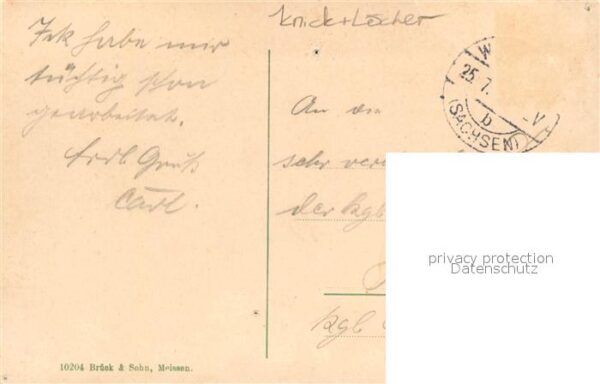 Knick + Löcher
Ich habe mir
tüchtig schon
gearbeitet.
Grdl Gruß
Carl.
W
25. 7.
-V
b
(SACHSEN)
An die
sehr
der kgl
kgl
privacy protection
Datenschutz
10204 Brück & Sohn, Meissen.